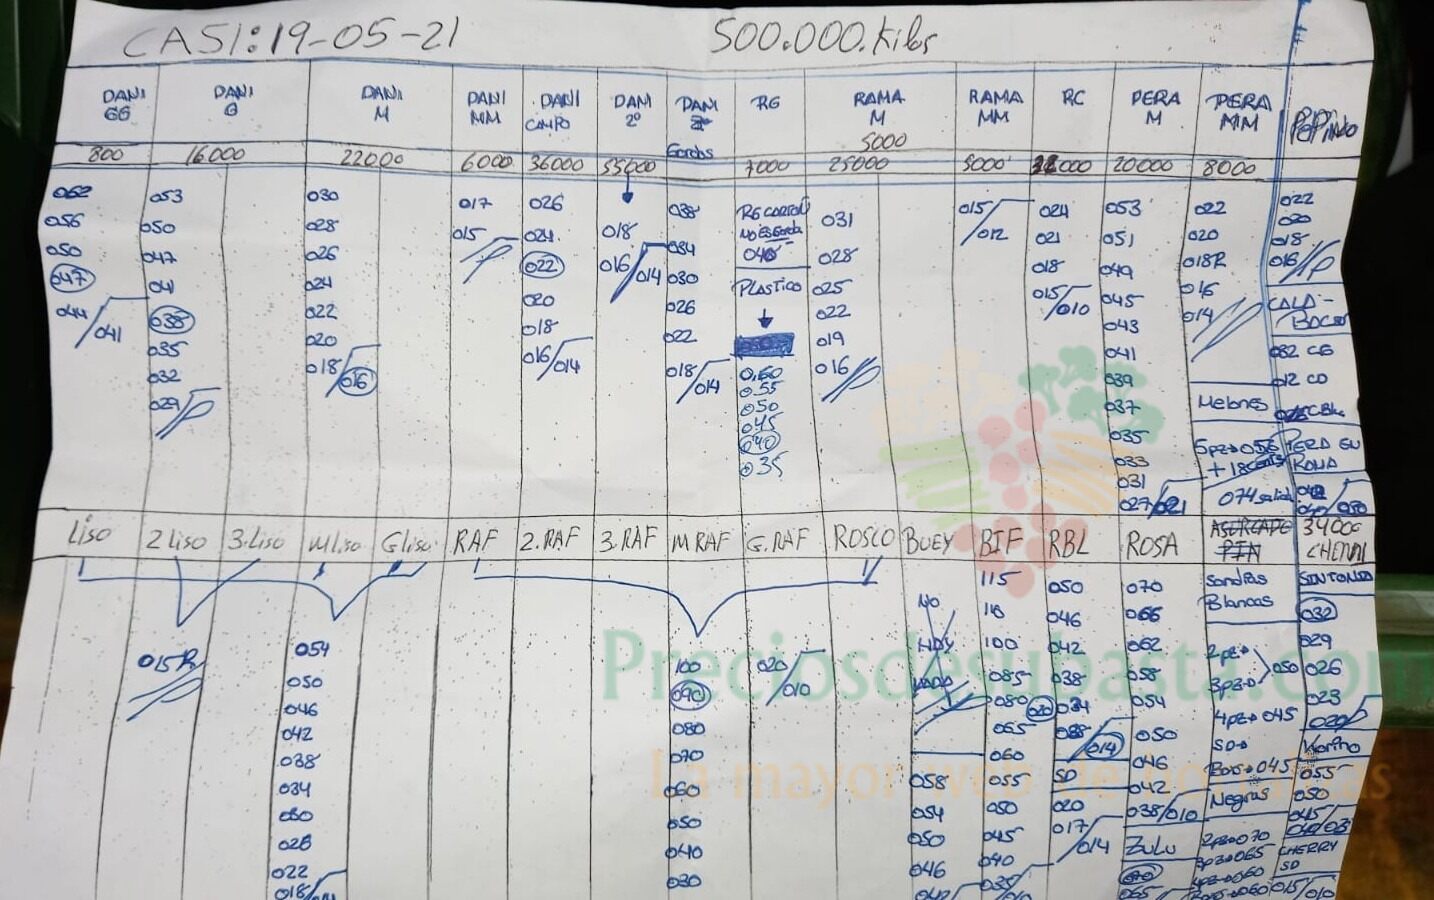 CASI: 19-05-21 500.000.kilos
DANI GG DANI G DANI M DANI MM DANI CAMPO DANI 2º DANI Gordas RG RAMA M 5000 RAMA MM RC PERA M PERA MM PePino
800 16000 22000 6000 36000 55000 7000 25000 5000 20000 8000
062 053 030 017 026 018 038 RG CARTON NO ES Gorda 031 015/012 024 053 022 022
056 050 028 015 024 016/014 034 028 021 051 020 020
050 047 026 022 030 PLASTICO 025 018 049 018R 018
047 041 024 020 026 022 015/010 045 016 016/P
044/041 038 022 018 022 019 043 014 CALA-
035 020 016/014 018/014 0.60 016 041 032 CG
032 018/016 0.55 039 012 CD
029 050 037 Melones
045 035 5pz→056 PERA GU
040 033 +18cents RONA
035 031 074 salida
027/021
Liso 2 Liso 3.Liso M Liso G Liso RAF 2.RAF 3.RAF M RAF G.RAF ROSCO BUEY BIF RBL ROSA 34000 CHERRI
115 050 070 Sandias Blancas SINTONIA
NO 110 046 066 032
015R 054 100 020/010 HOY 100 042 062 2pz→ 029
050 090 NADA 085 038 058 3pz→ 050 026
046 080 080 020 034 054 4pz→045 023
042 070 065 014 050 SD→ 020
038 060 060 SD 046 045 Kartho
034 050 058 055 020 042 Negras 055
030 040 054 050 017/014 038/010 2pz→070 050
028 030 050 045 ZULU 3pz→065 045
022 046 040 070 4pz→060 CHERRY SD
018 042 035 065 060 015/010
Preciosdesubasta.com
La mayor web de